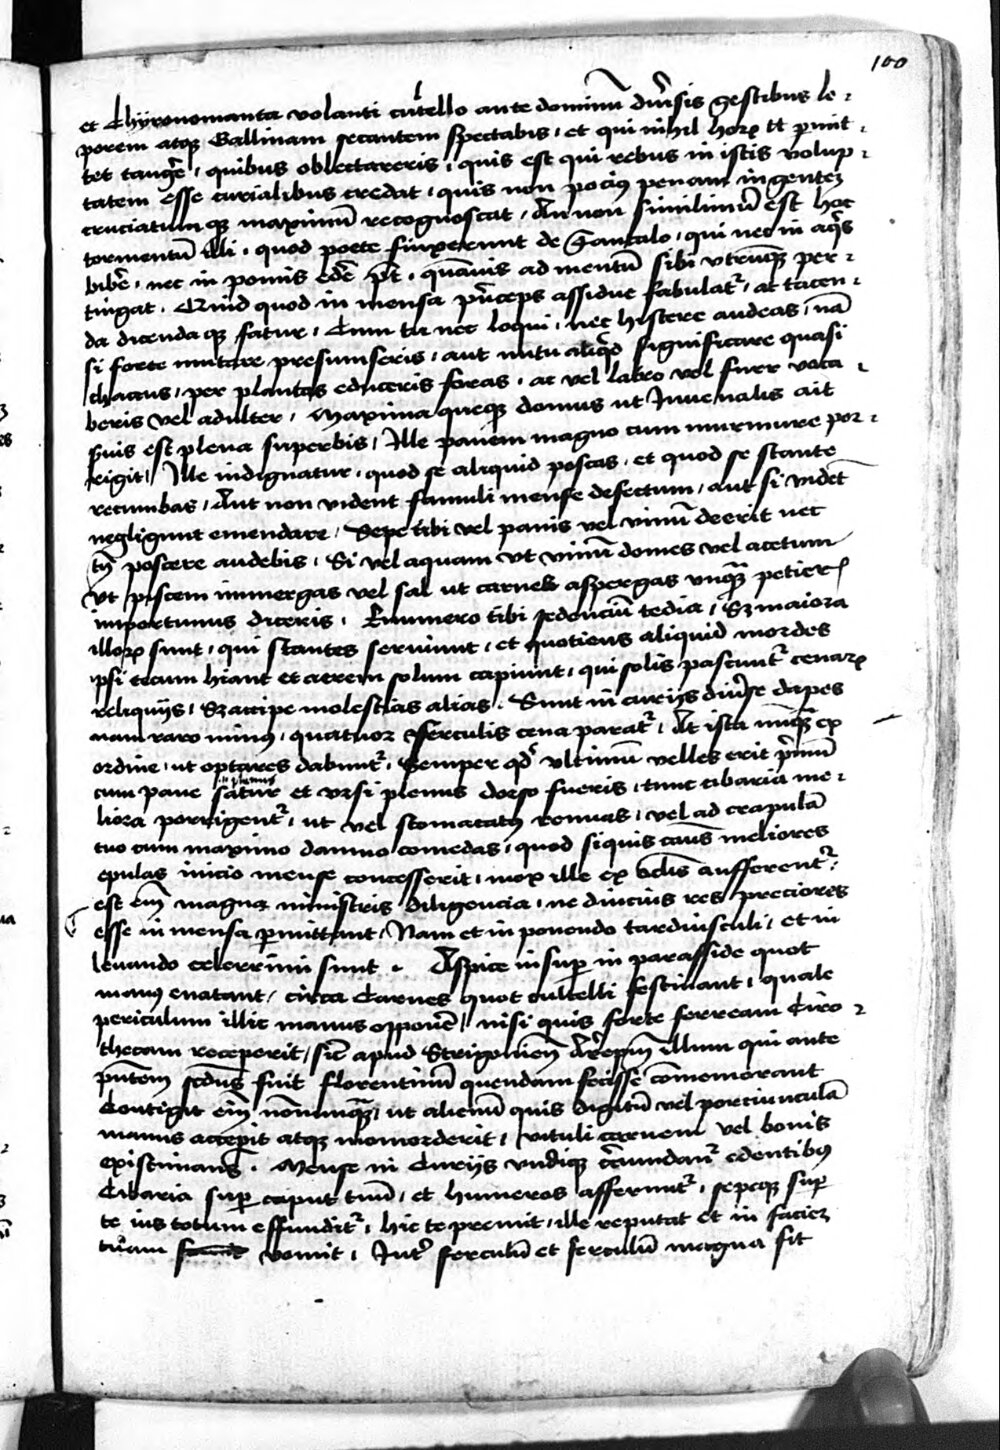 100
et Chyronomanta volanti cultello ante dominū diversis gestibus le-
porem atque Gallinam secantem spectabis, et qui nihil horum tibi permit-
tet tangere, quibus oblectareris, quis est qui rebus in istis volup-
tatem esse curialibus credat, quis non pocius penam ingentem
cruciatumque maximū recognoscat, An non simillimū est hoc
tormentū illi, quod poete finxerunt de Tantalo, qui nec in aquis
bibere, nec in pomis edere potest, quāvis ad mentū sibi utrumque per-
tingat. Quid quod in mensa princeps assidue fabulatur, ac tacen-
da dicendaque fatur, Cum tu nec loqui, nec hiscere audeas, nā
si forte mutire presumseris, aut nutu aliquid significare quasi
chacus, per plantas educeris foras, ac vel latro vel fuer voca-
beris vel adulter, Maxima queque domus ut Juvenalis ait
servis est plena superbis, Ille panem magno cum murmure por-
rigit, Ille indignatur, quod se aliquid poscas, et quod se stante
recumbas, Aut non vident famuli mense defectum, aut si vident
negligunt emendare, Sepe tibi vel panis vel vinū deerit nec
tamen poscere audebis, Si vel aquam ut vinū domes vel acetum
ut piscem immergas vel sal ut carnes aspergas unquam petieris
importunus diceris. Enumero tibi sedenciū tedia, Sed maiora
illorum sunt, qui stantes serviunt, et quotiens aliquid mordes
ipsi tecum hiant et aerem solum capiunt, qui solis pascuntur cenarum
reliquiis, Sed accipe molestias alias. Sunt in curiis diverse dapes
nam raro minus, quatuor ferculis cena paratur, At ista nunquam ex
ordine, ut optares dabuntur, Semper quod ultimum velles erit primū
cum pane satur et ursi plenus dorso fueris, tunc cibaria me-
liora porrigentur, ut vel stomacatus renuas, vel ad crapulā
tuo cum maximo damno comedas, quod siquis casus meliores
epulas inicio mense concesserit, mox ille ex oculis aufferentur,
est enim magna ministris diligencia, ne diucius res preciores
esse in mensa permittant, Nam et in ponendo tardiusculi, et in
levando celerrimi sunt. Aspice insuper in parasside quot
manus enatant, circa Carnes quot cultelli festinant, quale
periculum illic manus opponere, nisi quis forte ferream Ciro-
thecam receperit, sicut apud Strigoniensem Archiepiscopum illum qui ante
presentem sedens fuit florentinum quendam fecisse commemorant
Contigit enim nonnunquam, ut alienū quis digitū vel porciunculā
manus acceperit atque momorderit, vituli carnem vel bovis
existimans. Mense in Curiis undique circundantur edentibus
Cibaria super caput tuū, et humeros afferuntur, sepeque super
te ius totum effunditur, hic te premit, ille reputat et in faciem
tuam vomit, Inter ferculū et ferculū magna fit